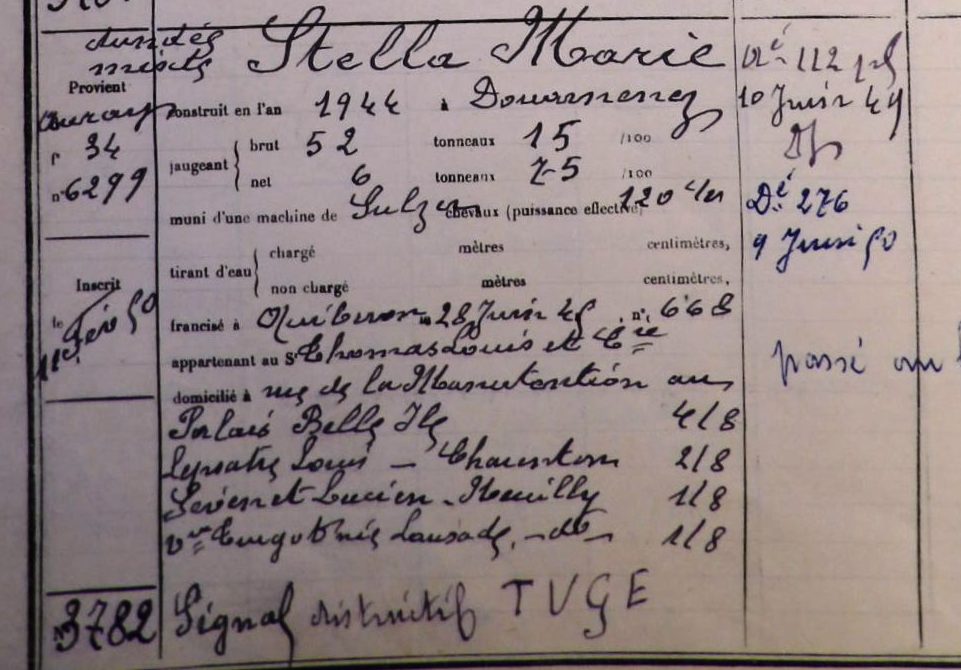 dundée
mixte
Stella Marie
Provient
Auray
f° 34
n° 6299
construit en l'an 1944 à Douarnenez
jaugeant
brut 52 tonneaux 15 /100
net 6 tonneaux 75 /100
muni d'une machine de Sulzer chevaux (puissance effective) 120 c/m
tirant d'eau
chargé mètres centimètres,
non chargé mètres centimètres,
Inscrit
le 11 Fév 50
francisé à Quiberon le 28 Juin 45, n° 668
appartenant au Sr Thomas Louis et Cie
domicilié à rue de la Manutention au
Palais Belle Ile 4/8
Louis - Charenton 2/8
Lucien - Neuilly 1/8
vve - do - 1/8
3782
Signal distinctif TVGE
Dé 112
10 Juin 49
Dé 276
9 Juin 50
passé au